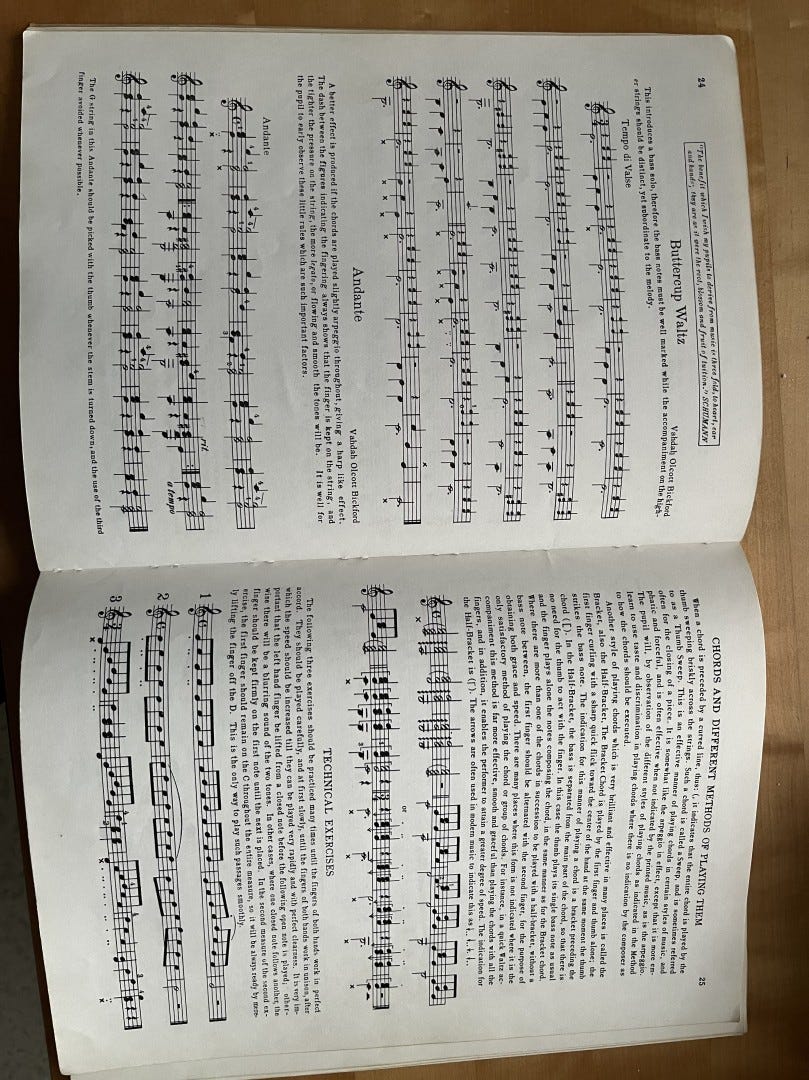 24
"The benefit which I wish my pupils to derive from music is three fold, to heart, ear
and hands; they are as it were the root, blossom and fruit of tuition." SCHUMANN
Buttercup Waltz
Vahdah Olcott Bickford
This introduces a bass solo, therefore the bass notes must be well marked while the accompaniment on the high-
er strings should be distinct, yet subordinate to the melody.
Tempo di Valse
Andante
Vahdah Olcott Bickford
A better effect is produced if the chords are played slightly arpeggio throughout, giving a harp like effect.
The dash between the figures indicating the fingering always shows that the finger is kept on the string, and
the tighter the pressure on the string, the more legato, or flowing and smooth the tones will be. It is well for
the pupil to early observe these little rules which are such important factors.
Andante
rit.
a tempo
The G string in this Andante should be picked with the thumb whenever the stem is turned down, and the use of the third
finger avoided whenever possible.
25
CHORDS AND DIFFERENT METHODS OF PLAYING THEM
When a chord is preceded by a curved line, thus: (, it indicates that the entire chord is played by the
thumb sweeping briskly across the strings. Such a chord is called a Sweep, and is sometimes referred
to as a Thumb Sweep. This is an effective manner of playing chords in certain styles of music, and
often for the closing of a piece. It is somewhat like the arpeggio in effect, except that it is more em-
phatic and forceful, and is often effective when not indicated by the printed music, as is the arpeggio.
The pupil will, by observation of the different styles of playing chords as indicated in the Method
learn to use taste and discrimination in playing chords where there is no indication by the composer as
to how the chords should be executed.
Another style of playing chords which is very brilliant and effective in many places is called the
Bracket, also the Half-Bracket. The Bracket Chord is played by the first finger and thumb alone; the
first finger curling with a sharp quick flick toward the center of the hand at the same moment the thumb
strikes the bass note. The indication for this manner of playing a chord is a bracket preceding the
chord ([). In the Half-Bracket, the bass is separated from the main part of the chord, so that there is
no need for the thumb to act with the finger; in this case the thumb plays its single bass note as usual
and the finger plays alone the notes composing the chord, in the same manner as for the Bracket chord.
Where there are more than one of the chords in succession to be played with a half-bracket, without a
bass note between, the first finger should be alternated with the second finger, for the purpose of
obtaining both grace and speed. There are many places where this form is not indicated where it is the
only satisfactory method of playing the chord or group of chords. For instance, in a quick Waltz ac-
companiment this method is far more effective, smooth and graceful than playing the chords with all the
fingers, and in addition, it enables the performer to attain a greater degree of speed. The indication for
the Half-Bracket is (⌈). The arrows are often used in modern music to indicate this as
or
TECHNICAL EXERCISES
The following three exercises should be practiced many times until the fingers of both hands work in perfect
accord. They should be played carefully, and at first slowly, until the fingers of both hands work in unison, after
which the speed should be increased till they can be played very rapidly and with perfect clearness. It is very im-
portant that the left hand finger be lifted from a closed note before the following open note is played; other-
wise there will be a blurring sound of the two tones. In other cases, where one closed note follows another, the
finger should be kept firmly on the first note until the next is placed. In the second measure of the second ex-
ercise, the first finger should remain on the C throughout the entire measure, so it will be always ready by mere-
ly lifting the finger off the D. This is the only way to play such passages smoothly.
1
2
3